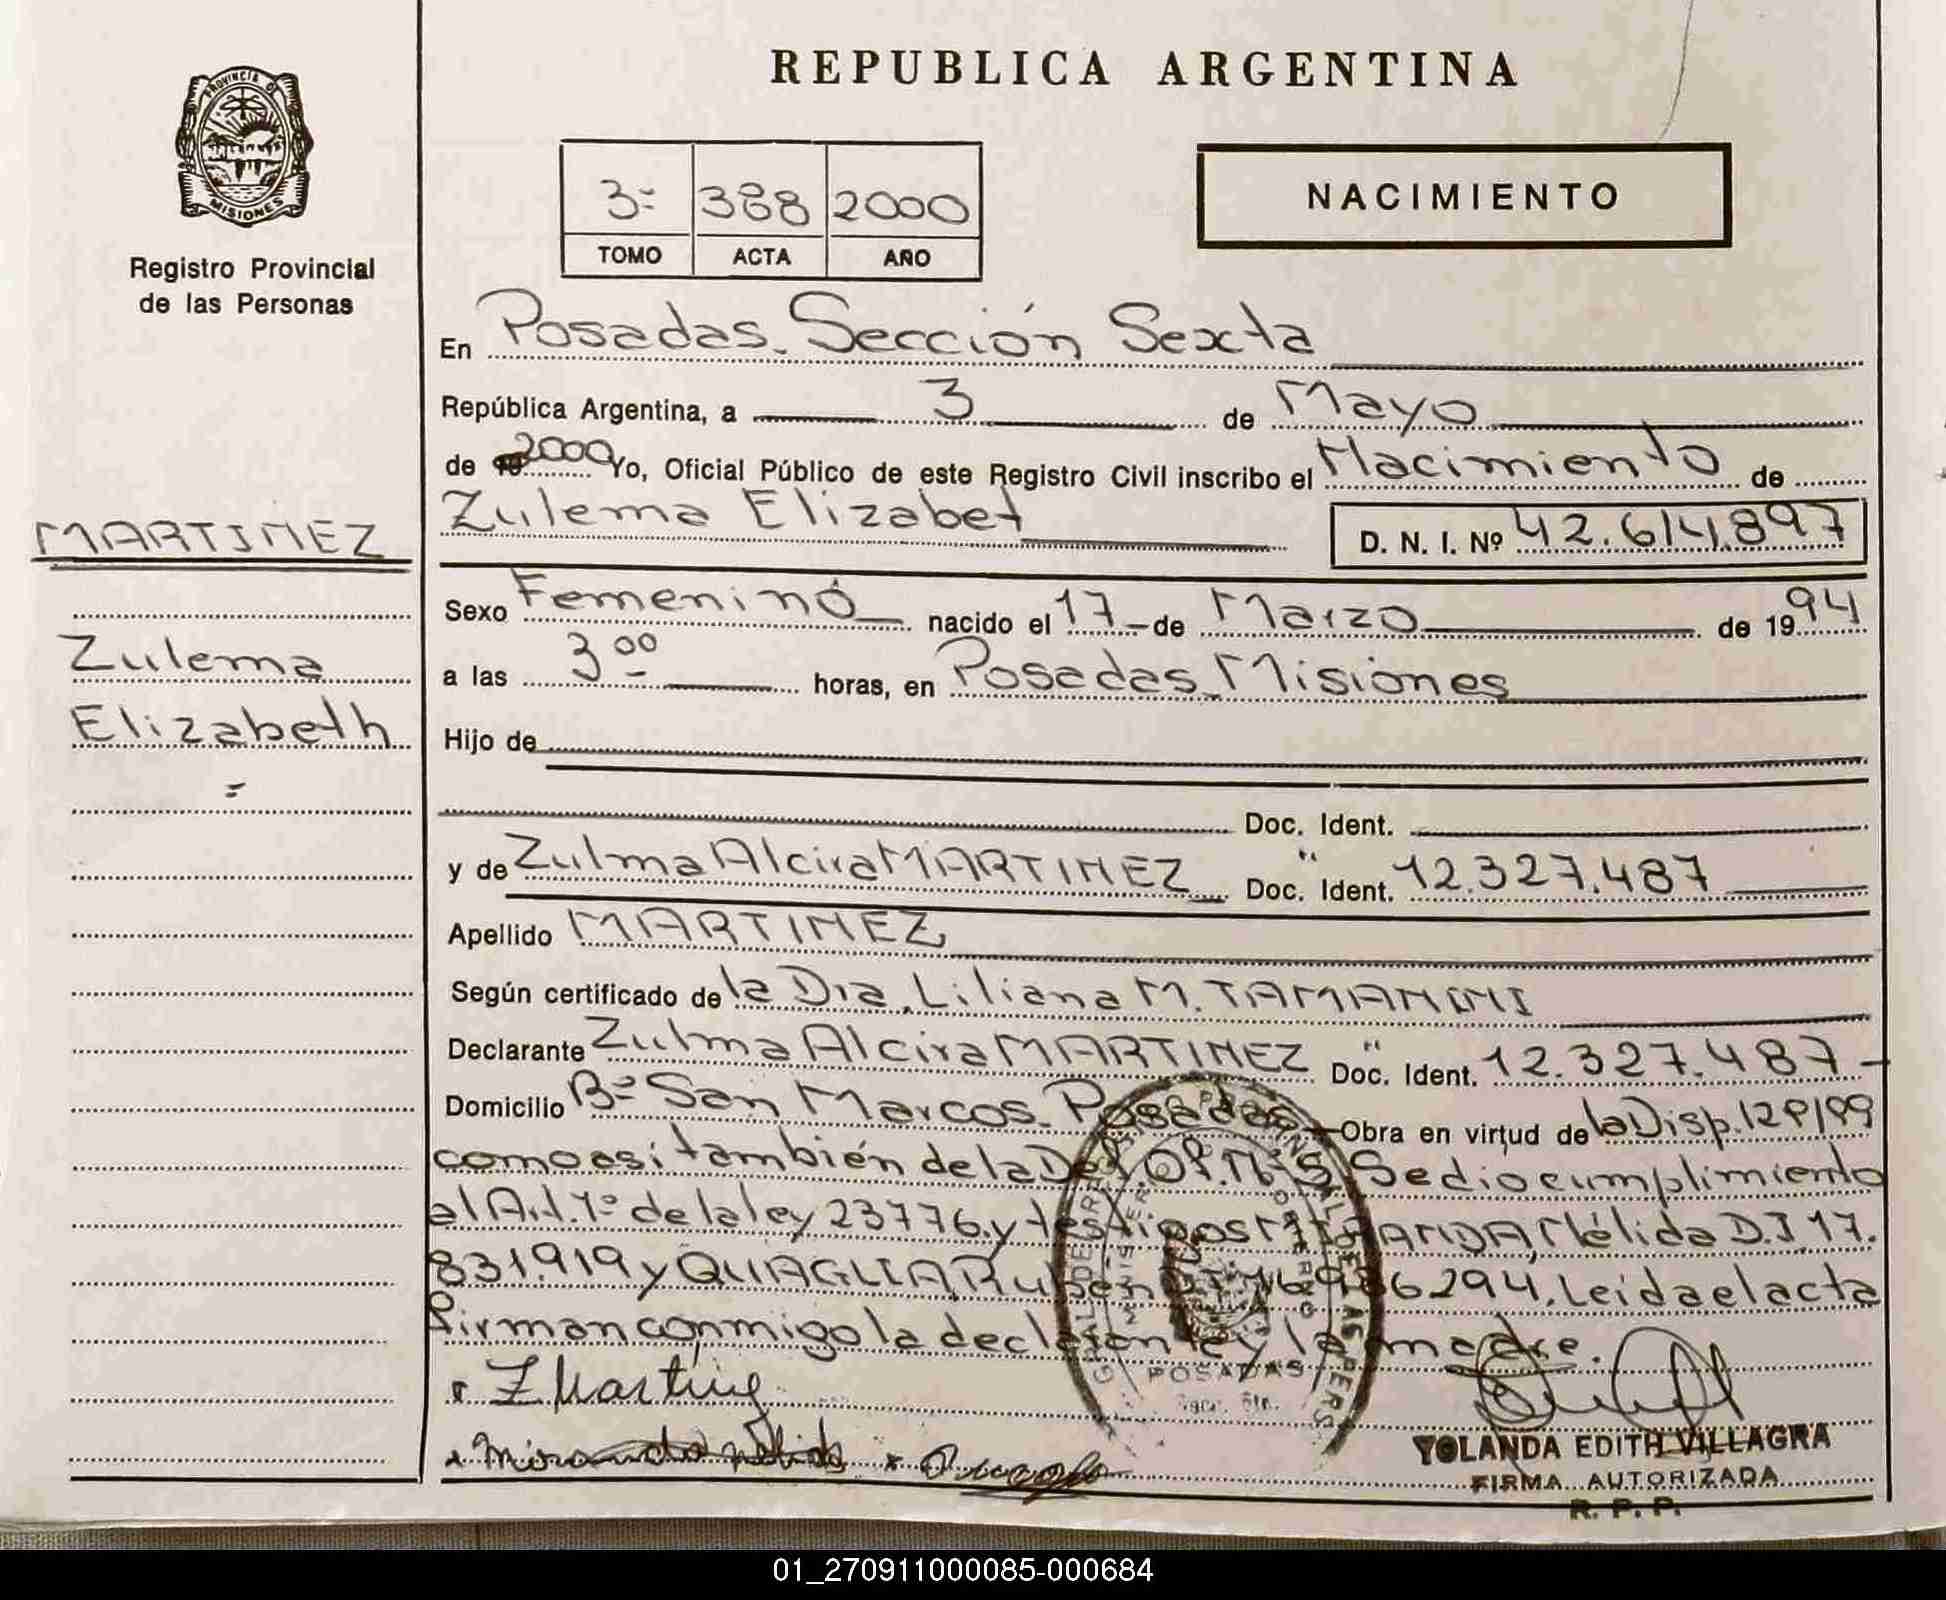 REPUBLICA ARGENTINA
PROVINCIA DE
MISIONES
Registro Provincial
de las Personas
3= 388 2000
TOMO ACTA AÑO
NACIMIENTO
En Posadas. Sección Sexta
República Argentina, a 3 de Mayo
de 2000 Yo, Oficial Público de este Registro Civil inscribo el Nacimiento de
Zulema Elizabet D. N. I. Nº 42.614.897
MARTINEZ
Zulema
Elizabeth
=
Sexo Femenino nacido el 17 de Marzo de 1994
a las 3 00 horas, en Posadas. Misiones
Hijo de
Doc. Ident.
y de Zulma Alcira MARTINEZ Doc. Ident. " 12.327.487
Apellido MARTINEZ
Según certificado de la Dra. Liliana M. TAMANINI
Declarante Zulma Alcira MARTINEZ Doc. Ident. " 12.327.487-
Domicilio Bº San Marcos. Posadas Obra en virtud de la Disp. 129/99
como asi también de la Def. Of. Nº 5 Se dio cumplimiento
al Art. 1º de la ley 23776. y testigos MIRANDA, Nélida D.I 17.
831.919 y QUAGLIA Ruben 16986294. Leida el acta
firman conmigo la declarante y la madre.
Z Martinez
Miranda Nélida
POSADAS
YOLANDA EDITH VILLAGRA
FIRMA AUTORIZADA
R. P. P.
01_270911000085-000684